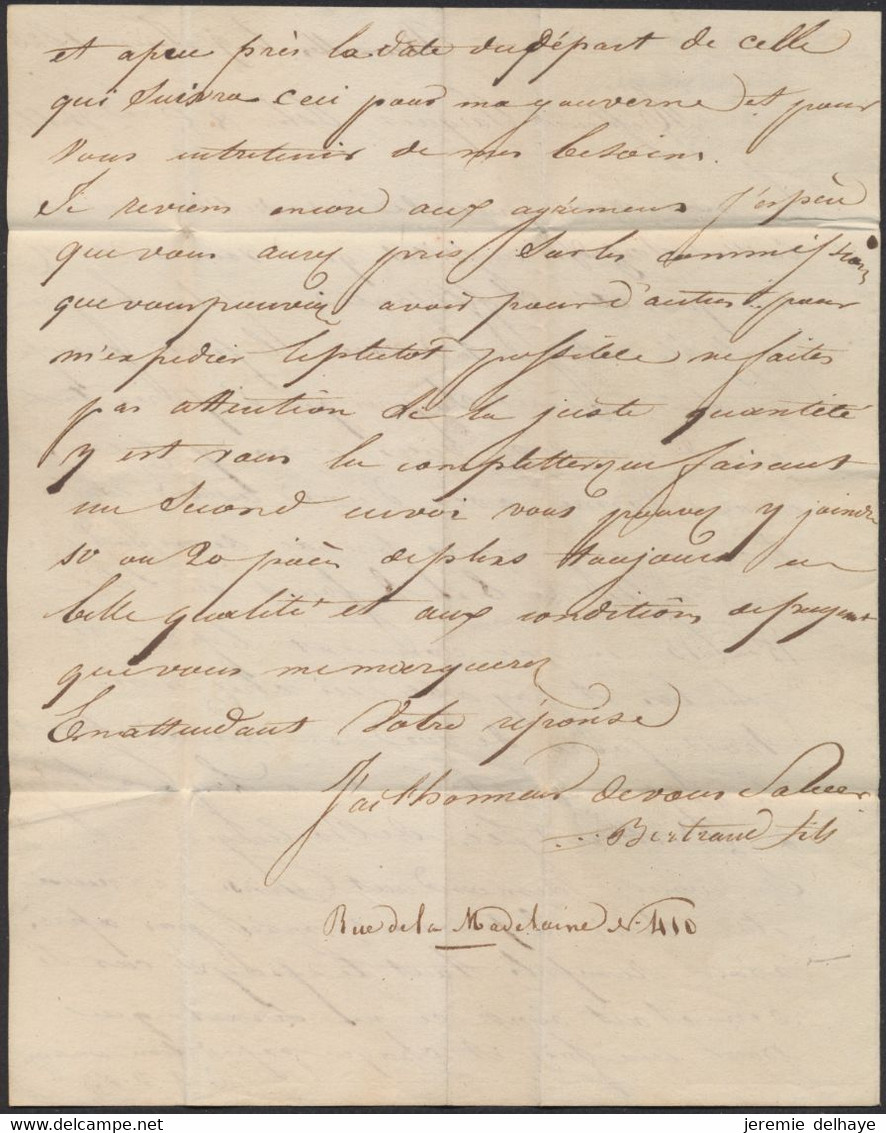 et apeu près la date du départ de celle
qui suivra ceci pour ma gouverne et pour
vous entretenir de mes besoins.
Je reviens encore aux agrémens j'espère
que vous aurez pris sur les commissions
que vous pouviez avoir pour d'autres pour
m'expedier leplutot possible ne faites
pas attention si la juste quantité
y est vous la completterez en faisant
un second envoi vous pouvez y joindre
10 ou 20 pièces deplus toujours en
belle qualité et aux conditions depayement
que vous me marquerez
En attendant Votre réponse
J'ai l'honneur de vous Saluer
Bertrand fils
Rue de la Madelaine N. 410
jeremie delhaye